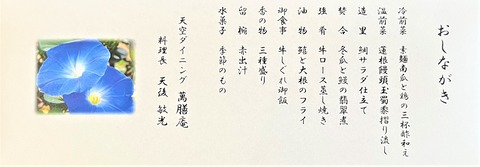 おしながき
冷前菜 素麺南瓜と鶏の三杯酢和え
温前菜 蓮根饅頭玉蜀黍摺り流し
造里 鯛サラダ仕立て
焚合 冬瓜と鰻の翡翠煮
強肴 牛ロース蒸し焼き
油物 鱧と大根のフライ
御食事 牛しぐれ御飯
香の物 三種盛り
留椀 赤出汁
水菓子 季節のもの
天空ダイニング 萬膳庵
料理長 天後 敏光